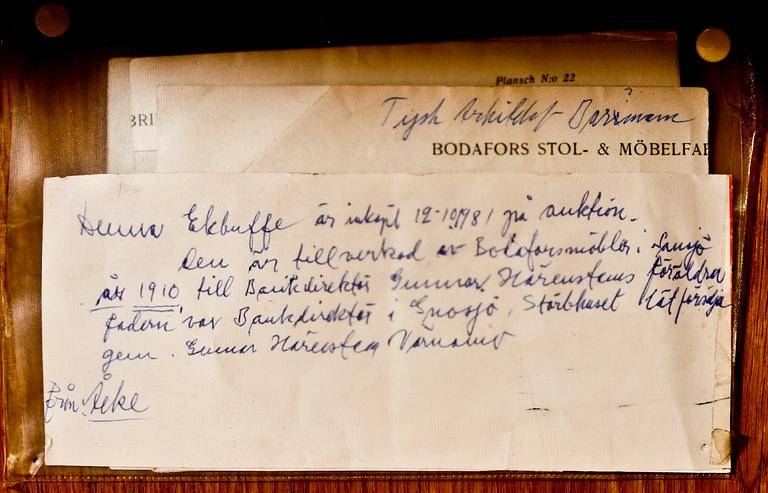 Plansch N:o 22
BRI
Tysk Arkitekt Barsmann
BODAFORS STOL- & MÖBELFAB
Denna Ekbuffe är inköpt 12-10/1981 på auktion.
Den är tillverkad av Bodaforsmöbler i
år 1910 till Bankdirektör Gunnar Hårenstams föräldrar
fadern var Bankdirektör i Gnosjö, Stärbhuset lät försälja
gem. Gunnar Hårenstam Värnamo
från Åke